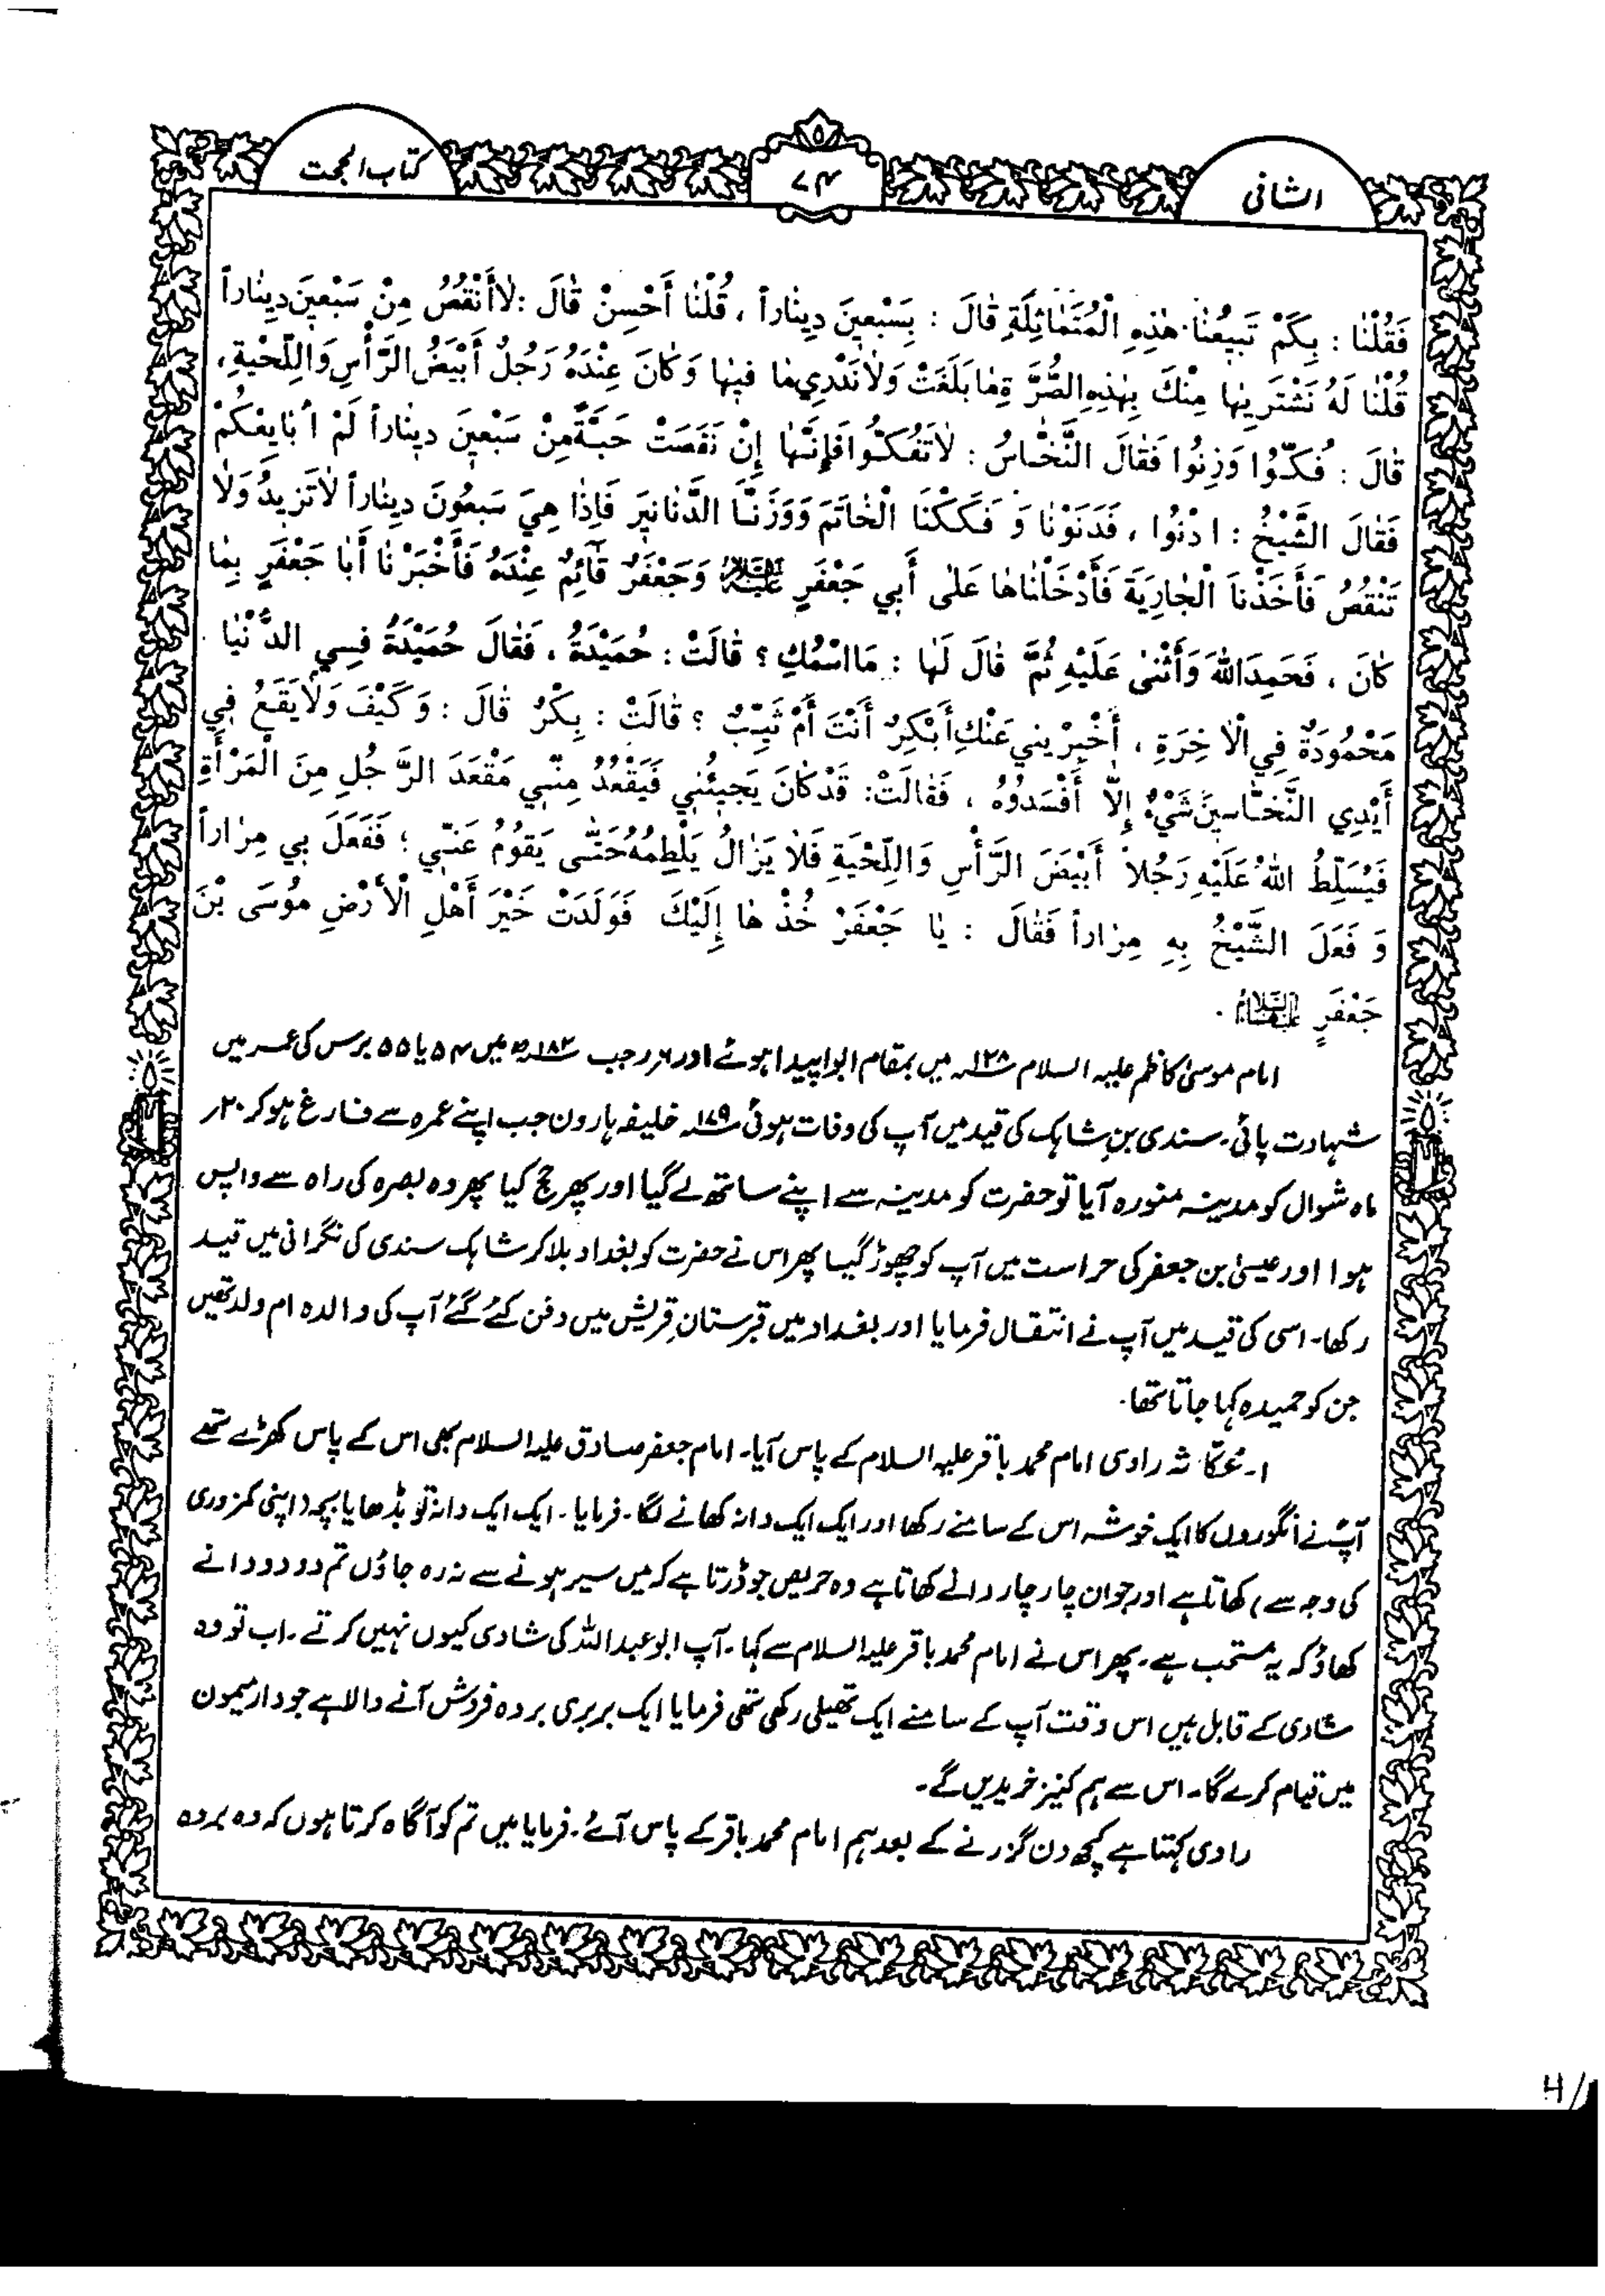 الشانی
۷۴
کتاب الحجت
فَقُلْنٰا : بِكَمْ تَبِيعُنٰا هٰذِهِ الْمُتَمٰاثِلَةِ قٰالَ : بِسَبْعِينَ دِينٰاراً ، قُلْنٰا أَحْسِنْ قٰالَ : لٰا أَنْقُصُ مِنْ سَبْعِينَ دِينٰاراً
قُلْنٰا لَهُ نَشْتَرِيهٰا مِنْكَ بِهٰذِهِ الصُّرَّةِ مٰا بَلَغَتْ وَلٰا نَدْرِي مٰا فِيهٰا وَكٰانَ عِنْدَهُ رَجُلٌ أَبْيَضُ الرَّأْسِ وَاللِّحْيَةِ ،
قٰالَ : فُكّوُا وَزِنُوا فَقٰالَ النَّخّٰاسُ : لٰا تَفُكّوُا فَإِنَّهٰا إِنْ نَقَصَتْ حَبَّةً مِنْ سَبْعِينَ دِينٰاراً لَمْ اُبٰايِعْكُمْ
فَقٰالَ الشَّيْخُ : ادْنُوا ، فَدَنَوْنٰا وَ فَكَكْنَا الْخٰاتَمَ وَوَزَنَّا الدَّنٰانِيرَ فَإِذٰا هِيَ سَبْعُونَ دِينٰاراً لٰا تَزِيدُ وَلٰا
تَنْقُصُ فَأَخَذْنَا الْجٰارِيَةَ فَأَدْخَلْنٰاهٰا عَلٰى أَبِي جَعْفَرٍ عَلَيْهِ السَّلَامُ وَجَعْفَرٌ قٰائِمٌ عِنْدَهُ فَأَخْبَرْنٰا أَبٰا جَعْفَرٍ بِمٰا
كٰانَ ، فَحَمِدَ اللهَ وَأَثْنىٰ عَلَيْهِ ثُمَّ قٰالَ لَهٰا : مَا اسْمُكِ ؟ قٰالَتْ : حُمَيْدَةُ ، فَقٰالَ حُمَيْدَةُ فِي الدُّنْيٰا
مَحْمُودَةٌ فِي الْاٰخِرَةِ ، أَخْبِرْينِي عَنْكِ أَبْكِرٌ أَنْتَ أَمْ ثَيِّبٌ ؟ قٰالَتْ : بِكْرٌ قٰالَ : وَكَيْفَ وَلٰا يَقَعُ فِي
أَيْدِي النَّخّٰاسِينَ شَيْءٌ إِلّٰا أَفْسَدُوهُ ، فَقٰالَتْ : قَدْ كٰانَ يَجِيئُنِي فَيَقْعُدُ مِنّي مَقْعَدَ الرَّجُلِ مِنَ الْمَرْأَةِ
فَيُسَلِّطُ اللهُ عَلَيْهِ رَجُلاً أَبْيَضَ الرَّأْسِ وَاللِّحْيَةِ فَلٰا يَزٰالُ يَلْطِمُهُ حَتّٰى يَقُومُ عَنّي ؛ فَفَعَلَ بِي مِرٰاراً
وَ فَعَلَ الشَّيْخُ بِهِ مِرٰاراً فَقٰالَ : يٰا جَعْفَرُ خُذْهٰا إِلَيْكَ فَوَلَدَتْ خَيْرَ أَهْلِ الْأَرْضِ مُوسَى بْنَ
جَعْفَرٍ عَلَيْهِمَا السَّلَامُ .
امام موسیٰ کاظم علیہ السلام ۱۲۸ھ میں بمقام ابوا پیدا ہوئے اور ۶ر رجب ۱۸۳ھ میں ۵۴ یا ۵۵ برس کی عمر میں
شہادت پائی۔ سندی بن شاہک کی قید میں آپ کی وفات ہوئی ۱۷۹ھ خلیفہ ہارون جب اپنے عمرہ سے فارغ ہو کر ۲۰ر
ماہ شوال کو مدینہ منورہ آیا تو حضرت کو مدینہ سے اپنے ساتھ لے گیا اور پھر حج کیا پھر وہ بصرہ کی راہ سے واپس
ہوا اور عیسیٰ بن جعفر کی حراست میں آپ کو چھوڑ گیا پھر اس نے حضرت کو بغداد بلا کر شاہک سندی کی نگرانی میں قید
رکھا۔ اسی کی قید میں آپ نے انتقال فرمایا اور بغداد میں قبرستانِ قریش میں دفن کئے گئے آپ کی والدہ ام ولد تھیں
جن کو حمیدہ کہا جاتا تھا۔
۱۔ عکاشہ راوی امام محمد باقر علیہ السلام کے پاس آیا۔ امام جعفر صادق علیہ السلام بھی اس کے پاس کھڑے تھے
آپؑ نے انگوروں کا ایک خوشہ اس کے سامنے رکھا اور ایک ایک دانہ کھانے لگا۔ فرمایا۔ ایک ایک دانہ تو بڈھا یا بچہ (اپنی کمزوری
کی وجہ سے) کھاتا ہے اور جوان چار چار دانے کھاتا ہے وہ حریص جو ڈرتا ہے کہ میں سیر ہونے سے نہ رہ جاؤں تم دو دو دانے
کھاؤ کہ یہ مستحب ہے۔ پھر اس نے امام محمد باقر علیہ السلام سے کہا۔ آپ ابو عبداللہ کی شادی کیوں نہیں کرتے۔ اب تو وہ
شادی کے قابل ہیں اس وقت آپ کے سامنے ایک تھیلی رکھی تھی فرمایا ایک بربری بردہ فروش آنے والا ہے جو دار میمون
میں قیام کرے گا۔ اس سے ہم کنیز خریدیں گے۔
راوی کہتا ہے کچھ دن گزرنے کے بعد ہم امام محمد باقر کے پاس آئے۔ فرمایا میں تم کو آگاہ کرتا ہوں کہ وہ بردہ